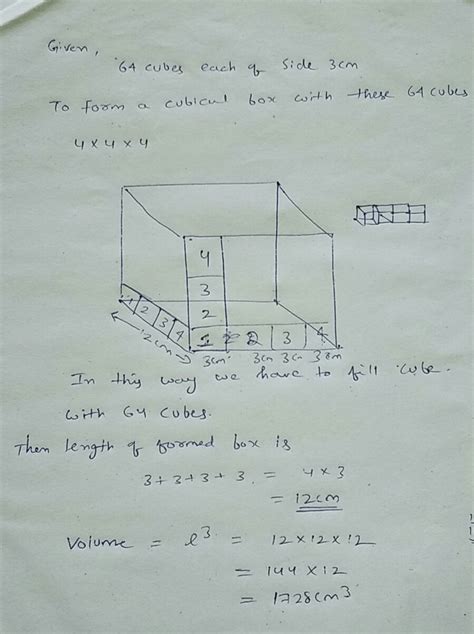 Given,
64 cubes each of side 3cm
To form a cubical box with these 64 cubes
4 × 4 × 4
4
3
2
1 2 3 4
1 2 2 3 4
12cm
3cm 3cm 3cm 3cm
In this way we have to fill cube.
with 64 cubes.
Then length of formed box is
3+3+3+3 = 4×3
= 12cm
Volume = l³ = 12×12×12
= 144×12
= 1728cm³